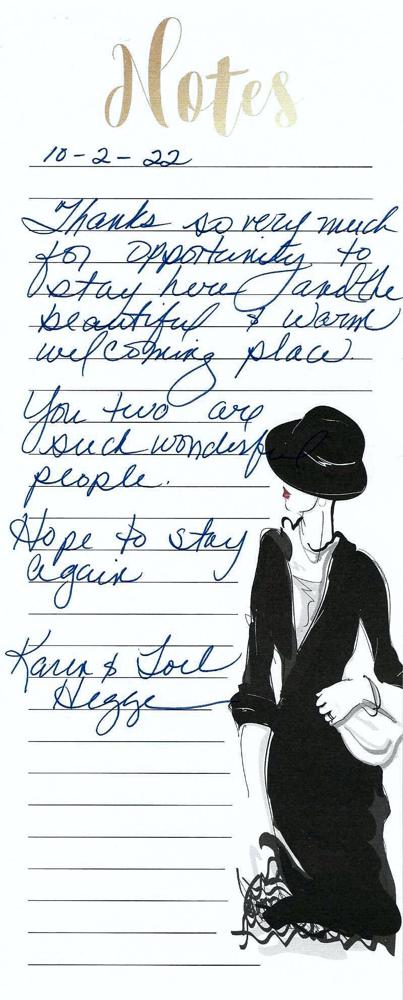 Notes
10-2-22
Thanks so very much
for opportunity to
stay here and the
beautiful & warm
welcoming place.
You two are
such wonderful
people.
Hope to stay
again
Karen & Joel
Hegge